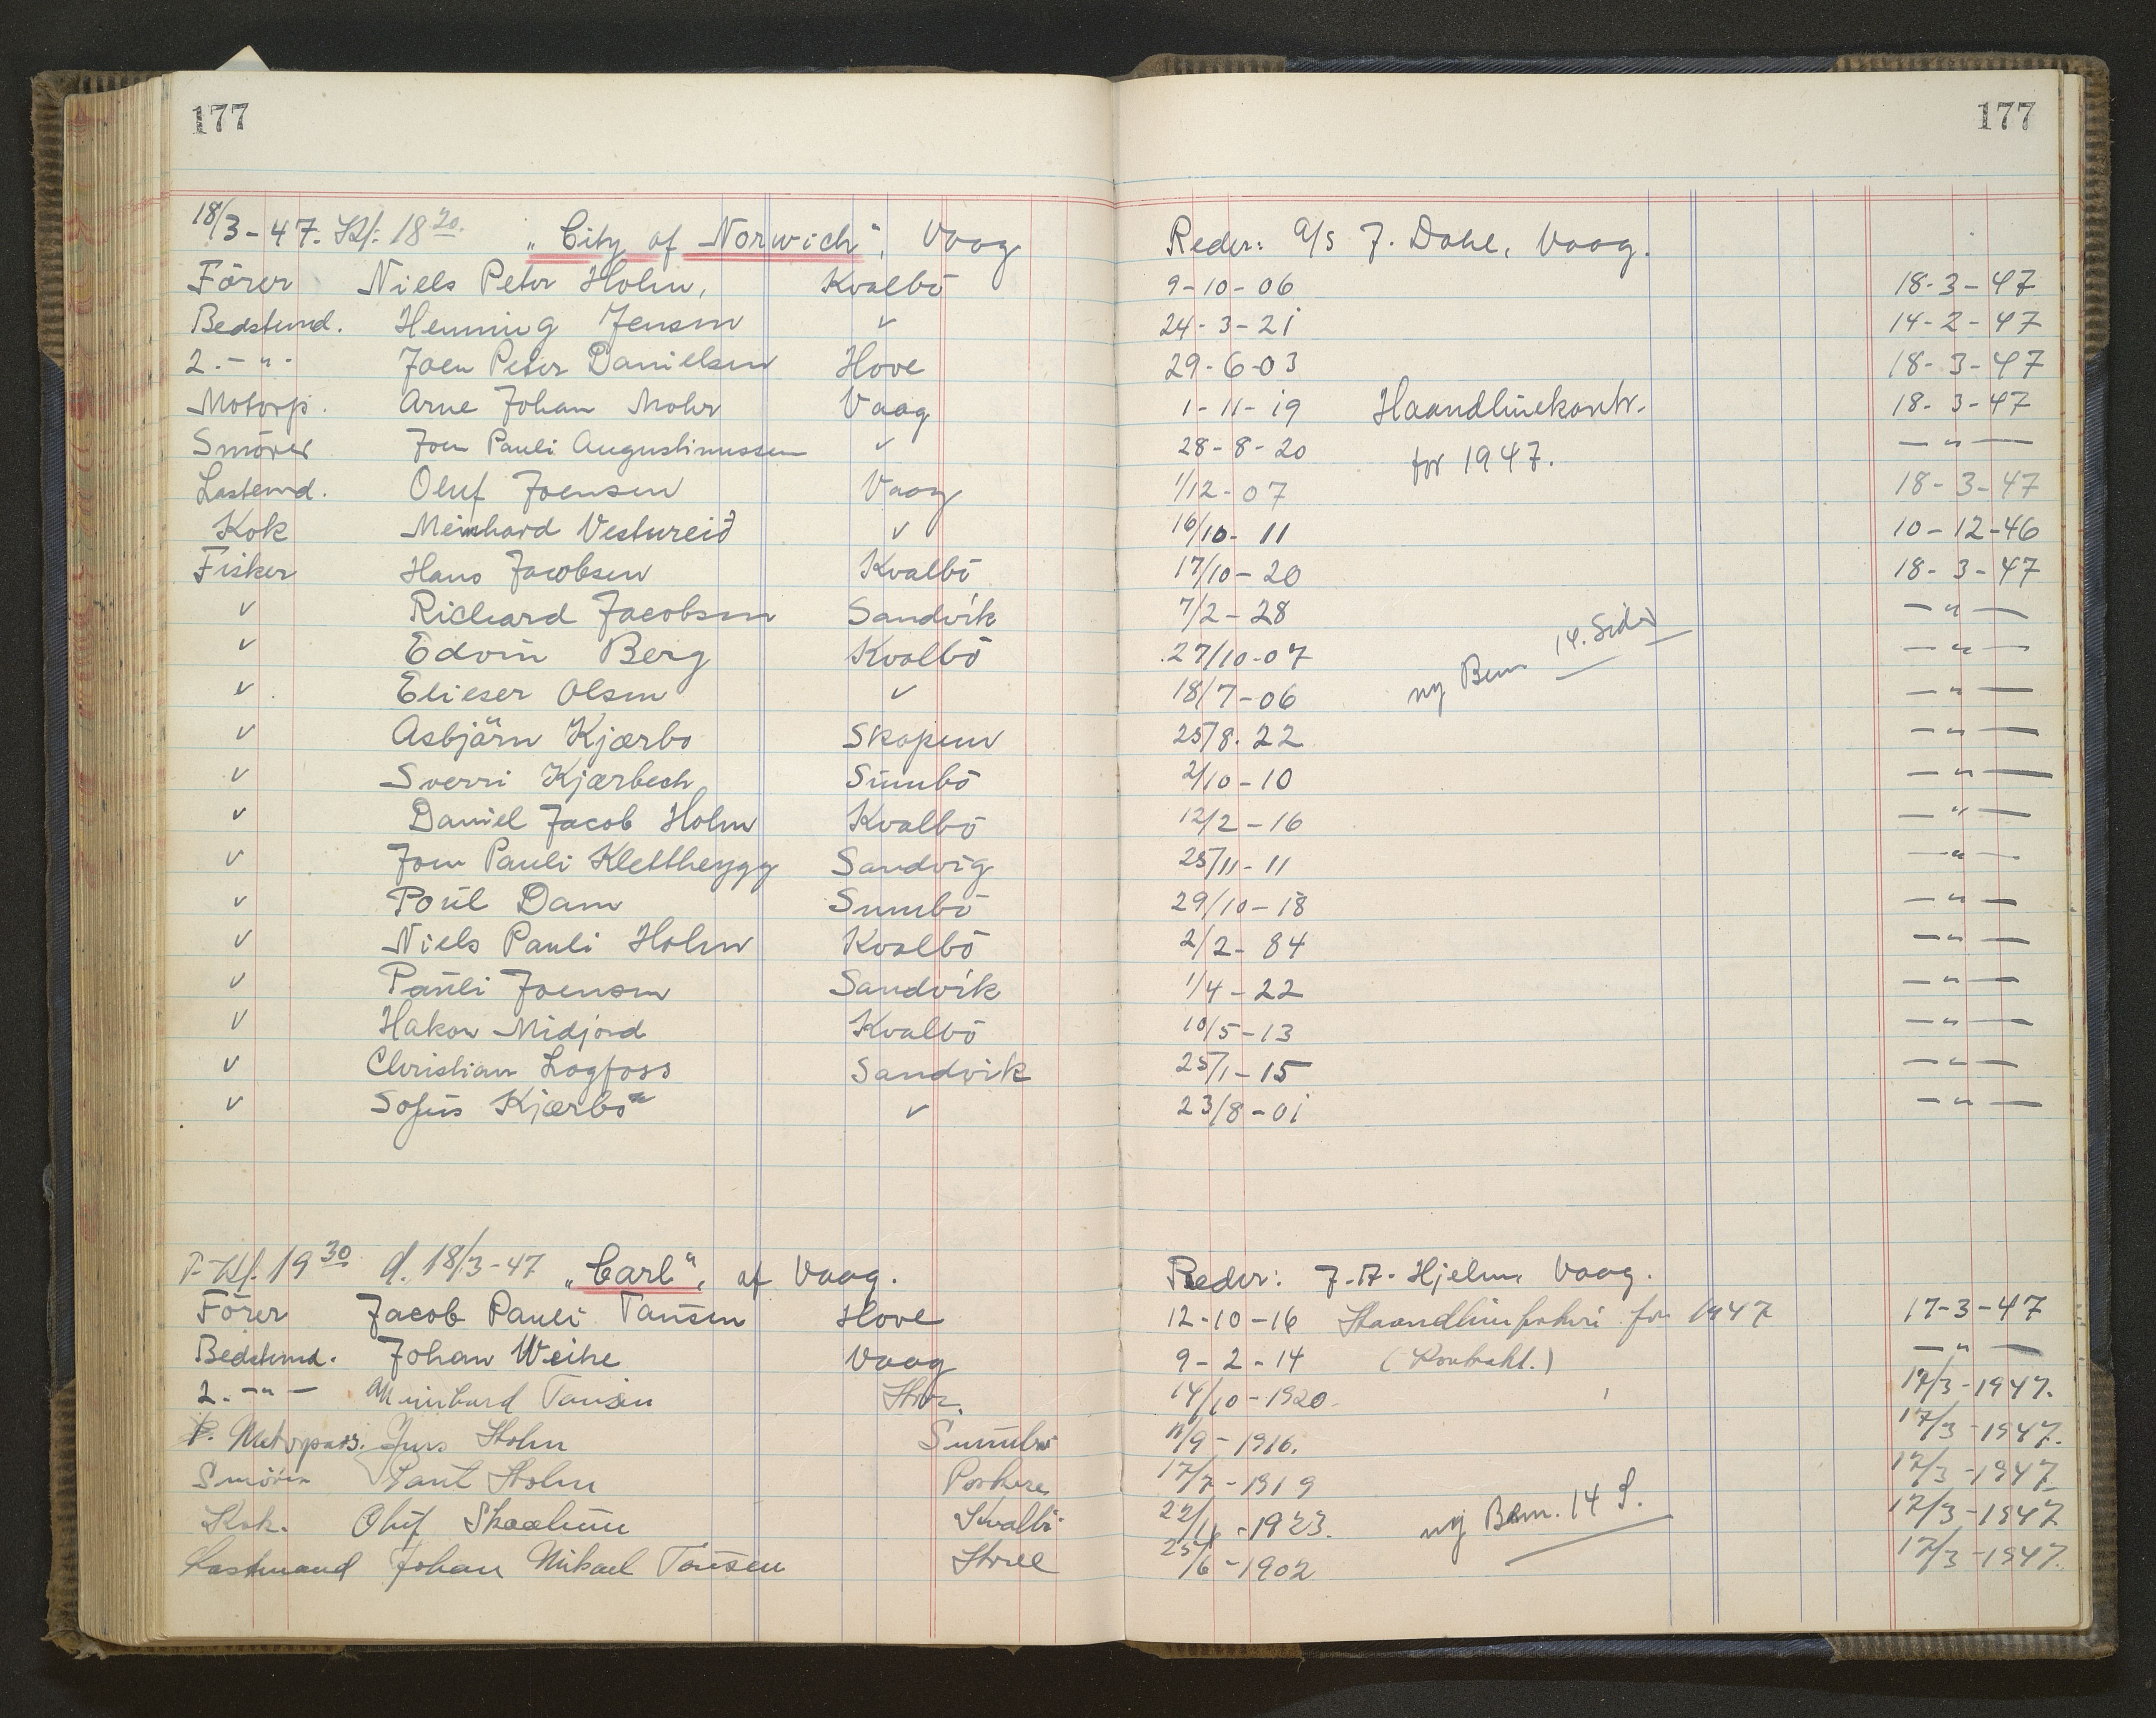 177 177
18/3-47. Kl. 18 20. "City of Norwich", Vaag Reder: A/S J. Dahl, Vaag.
Förer Niels Peter Holm, Kvalbö 9-10-06 18-3-47
Bedstemd. Henning Jensen ✓ 24-3-21 14-2-47
2. - " - Joen Peter Danielsen Hove 29-6-03 18-3-47
Motorp. Arne Johan Mohr Vaag 1-11-19 Haandlinekontr. 18-3-47
Smörer Joen Pauli Augustinussen ✓ 28-8-20 for 1947. — " —
Lastemd. Oluf Joensen Vaag 1/12-07 18-3-47
Kok Meinhard Vestureið ✓ 16/10-11 10-12-46
Fisker Hans Jacobsen Kvalbö 17/10-20 18-3-47
✓ Richard Jacobsen Sandvik 7/2-28 — " —
✓ Edvin Berg Kvalbö 27/10-07 ny Bem 14. Side — " —
✓ Elieser Olsen ✓ 18/7-06 — " —
✓ Asbjörn Kjærbo Skopun 25/8.22 — " —
✓ Sverri Kjærbech Sumbö 2/10-10 — " —
✓ Daniel Jacob Holm Kvalbö 12/2-16 — " —
✓ Joen Pauli Klettheygg Sandvig 25/11-11 — " —
✓ Poul Dam Sumbö 29/10-18 — " —
✓ Niels Pauli Holm Kvalbö 2/2-84 — " —
✓ Pauli Joensen Sandvik 1/4-22 — " —
✓ Hakon Midjord Kvalbö 10/5-13 — " —
✓ Christian Logfoss Sandvik 25/1-15 — " —
✓ Sofus Kjærbo ✓ 23/8-01 — " —
Kl. 19 30 d. 18/3-47 "Carl", af Vaag. Reder: J. A. Hjelm, Vaag.
Förer Jacob Pauli Tausen Hove 12-10-16 for 1947 17-3-47
Bedstemd. Johan Weihe Vaag 9-2-14 (Kontrakt.) — " —
2. - " - Meinhard Tausen 14/10-1920. 17/3-1947.
Motorpass. Jens Holm Sumbö 11/9-1916. 17/3-1947.
Smörer Holm Porkere 17/7-1919 17/3-1947
Kok. Oluf Skaalum Kvalbö 1923. ny Bem. 14 S. 17/3-1947
Lastemand Johan Mikael Tausen Hove 25/6-1902 17/3-1947.